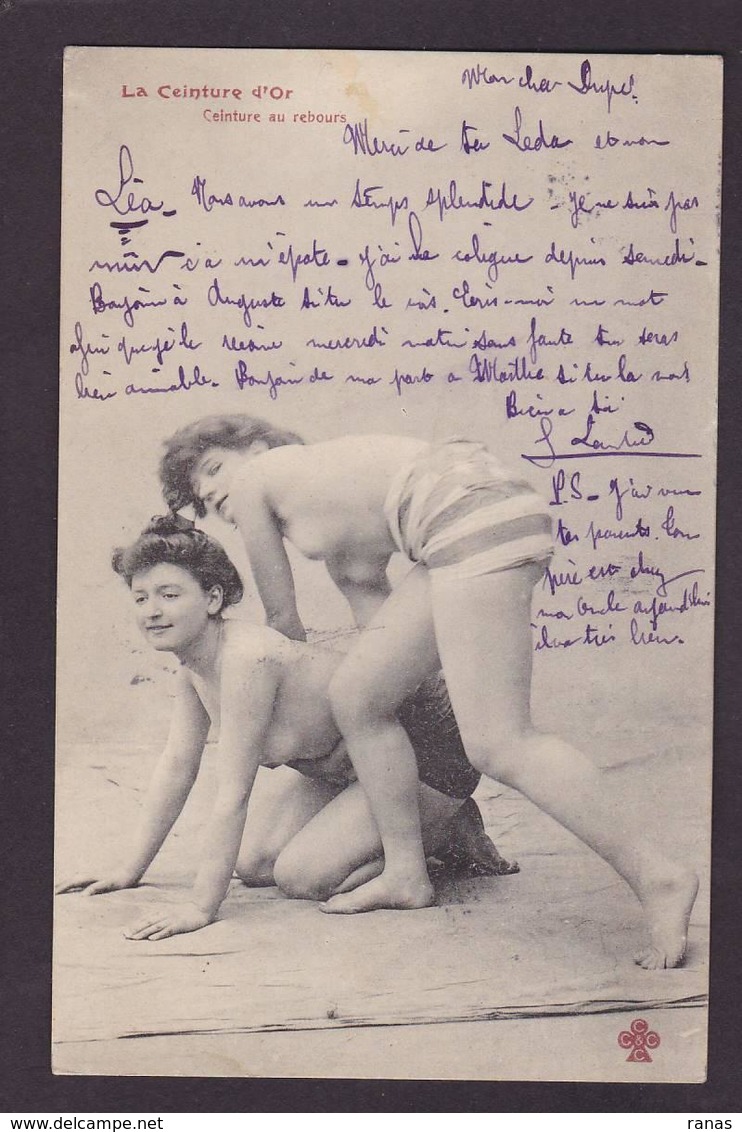 La Ceinture d'Or
Ceinture au rebours
Mon cher Dupé
Merci de ta Leda et non
Léa. Nous avons un temps splendide. Je ne suis pas
mûr ça m'épate. J'ai la colique depuis samedi.
Bonjour à Auguste si tu le vois. Ecris-moi un mot
afin que je le reçoive mercredi matin sans faute tu seras
bien aimable. Bonjour de ma part a Marthe si tu la vois
Bien a toi
P.S. J'ai vu
tes parents. Ton
père est chez
mon Oncle aujourd'hui
il va très bien.
C C & C C
ranas